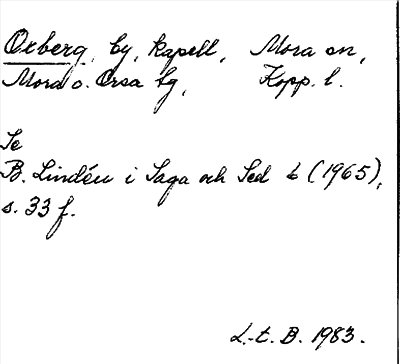 Oxberg, by, kapell, Mora sn,
Mora o. Orsa tg, Kopp. l.
Se
B. Lindén i Saga och Sed 6 (1965),
s. 33 f.
L.-t. B. 1983.